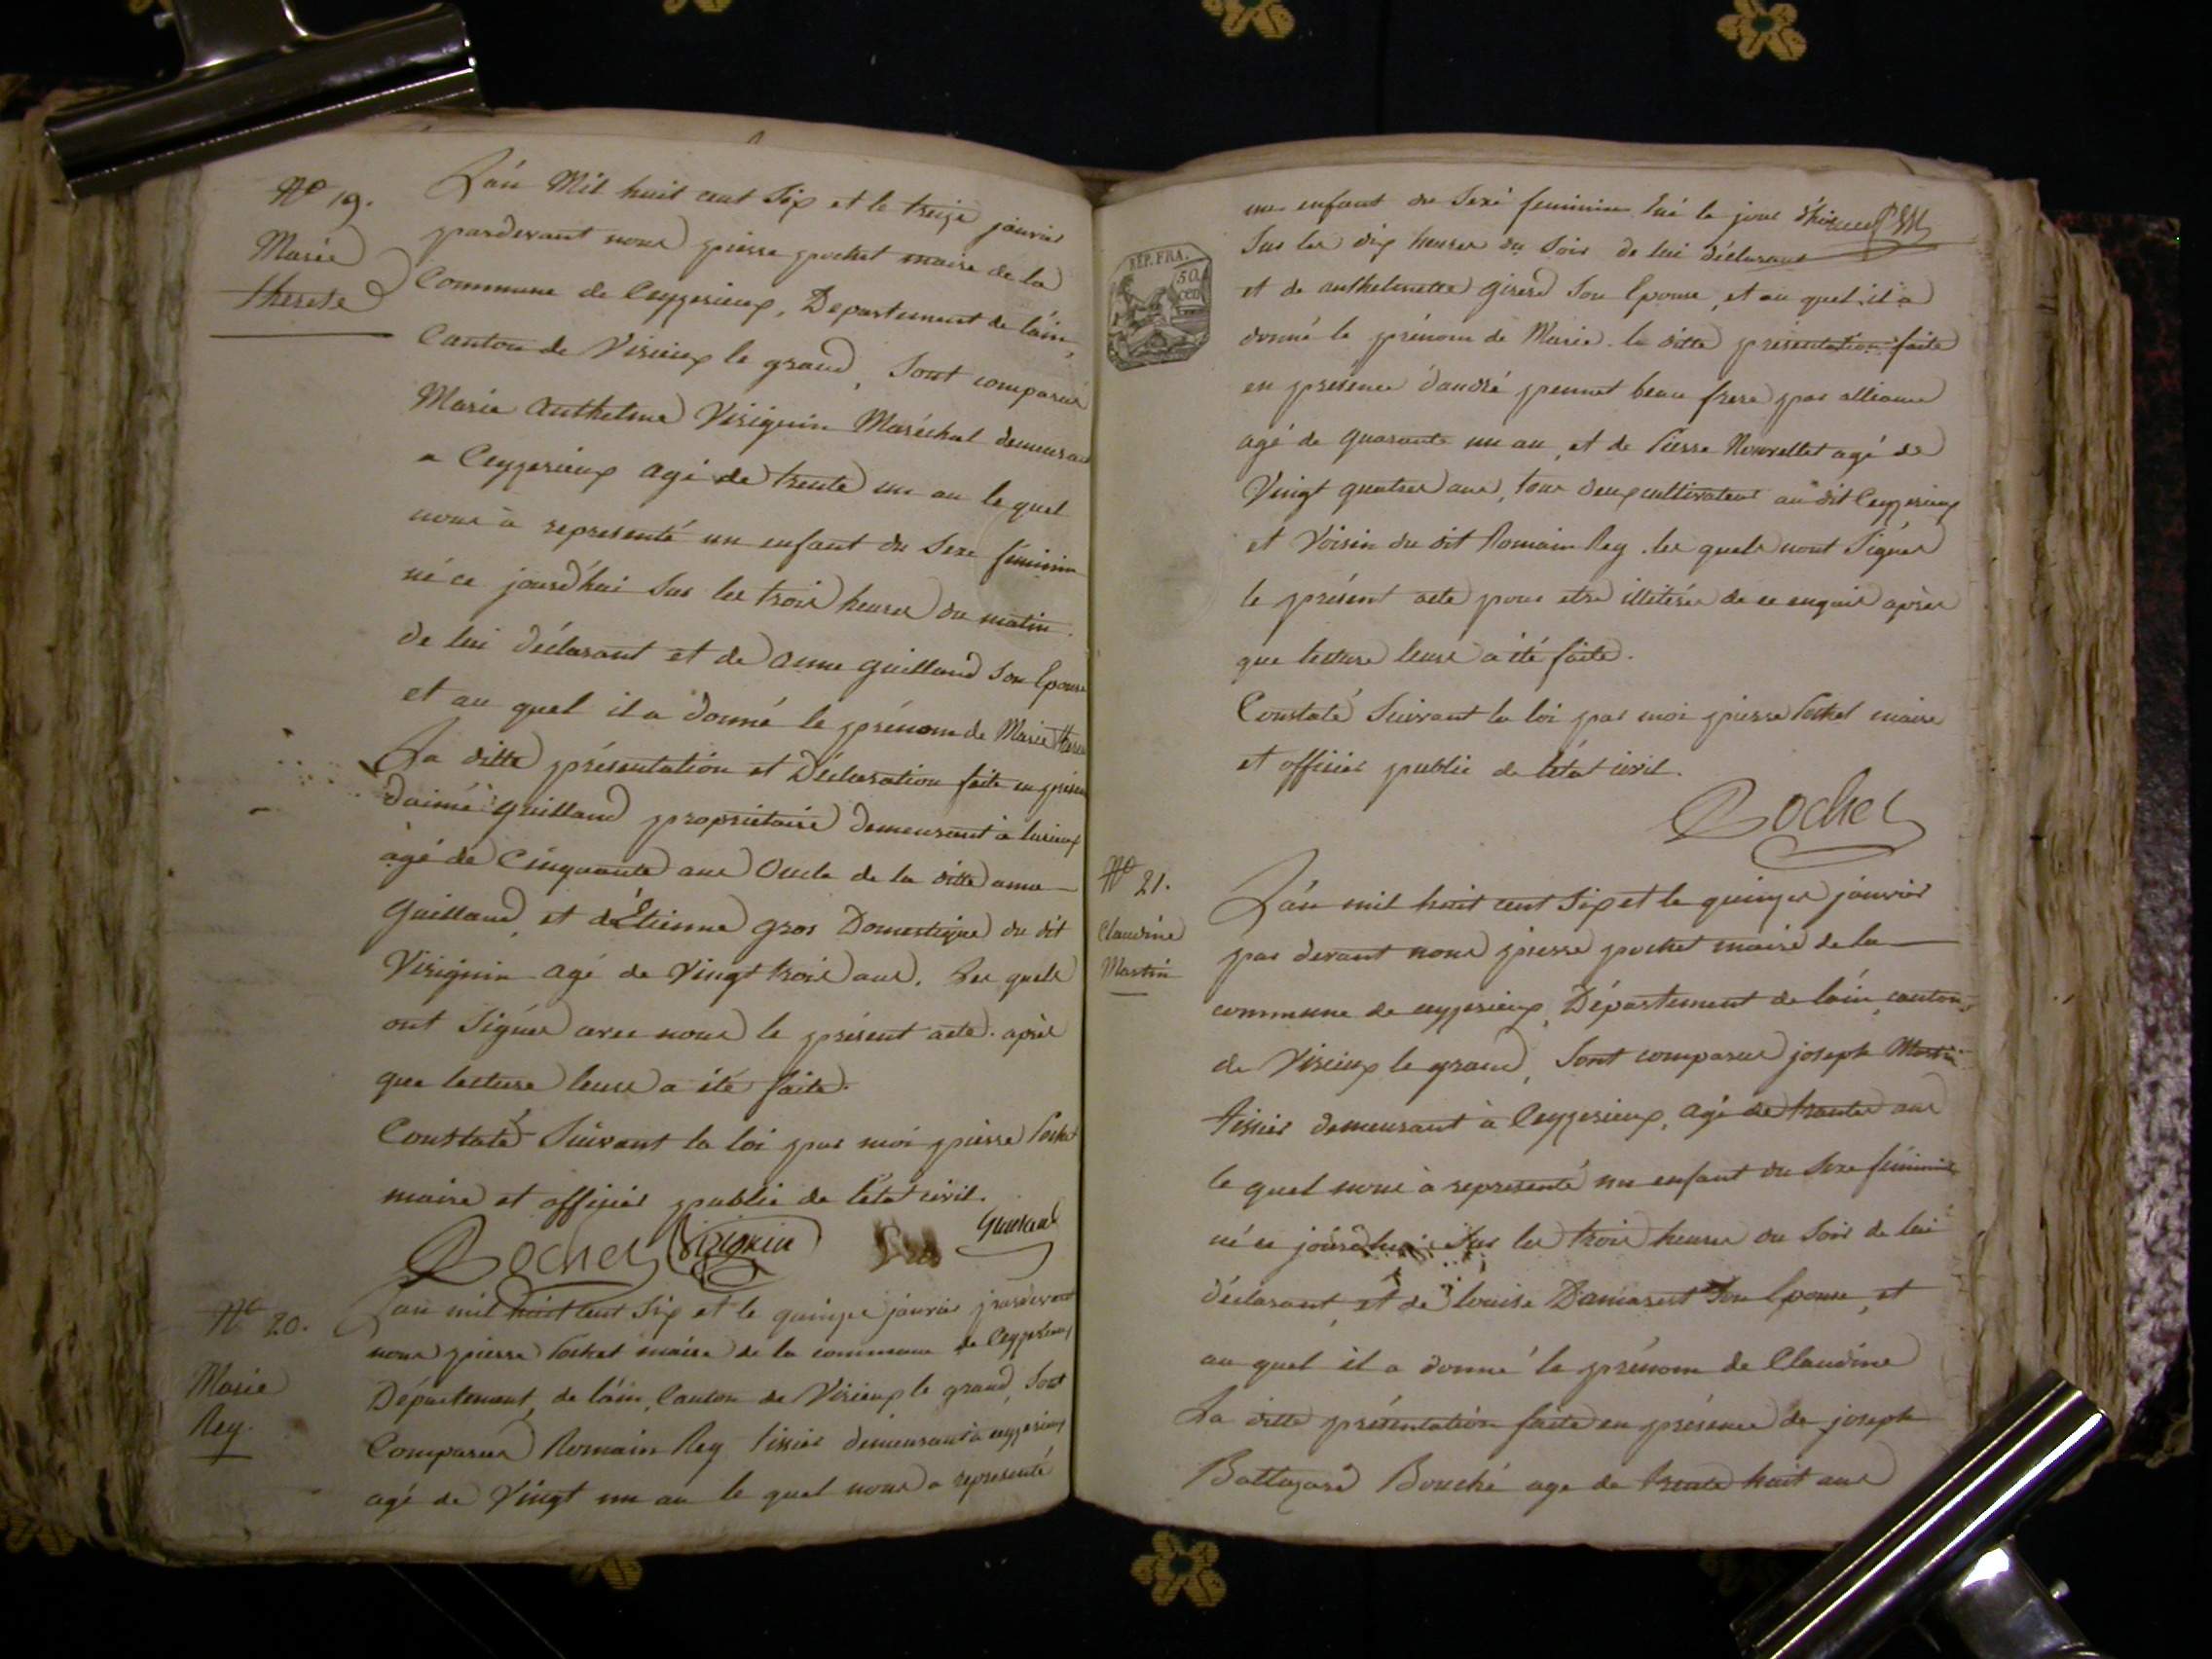 N° 19.
Marie
therese
L'an Mil huit cent Six et le treize janvier
pardevant nous pierre pochet maire de la
Commune de Ceyzerieux, Departement de l'ain,
Canton de Virieux le grand, Sont comparus
Marie Anthelme Virignin Maréchal demeurant
a Ceyzerieux agé de trente un an le quel
nous à representé un enfant du Sexe féminin
né ce jourd'hui Sur les trois heures du matin.
de lui déclarant et de anne guilland Son Epouse
et au quel il a donné le prénom de Marie therese
La ditte présentation et Déclaration faite en présence
d'aimé guilland propriétaire demeurant à
agé de Cinquante ans Oncle de la ditte anne
Guilland, et d'Etienne gros Domestique du dit
Virignin agé de Vingt trois ans. Les quels
ont Signés avec nous le présent acte. après
que lecture leurs a été faite.
Constaté Suivant la loi par moi pierre Pochet
maire et officier public de l'état civil.
Pochet Virignin Gros Guilland
N° 20.
Marie
Rey.
L'an mil huit cent Six et le quinze janvier pardevant
nous pierre Pochet maire de la commune de Ceyzerieux
Département, de l'ain, Canton de Virieux le grand, Sont
Comparus Romain Rey tissier demeurant à ceyzerieux
agé de Vingt un an le quel nous a representé
un enfant du Sexe feminin né le jour d'hier
Sur les dix heures du Soir de lui déclarant
et de anthelmette girerd Son Epouse, et au quel il a
donné le prénom de Marie. la ditte présentation faite
en presence d'andré pennet beau frere par alliance
agé de quarante un an, et de Pierre Nouvellet agé de
Vingt quatre ans, tous deux cultivateurs au dit Ceyzerieux
et Voisin du dit Romain Rey. les quels n'ont Signés
le présent acte pour etre illiterés de ce enquis après
que lecture leurs a été faite.
Constaté Suivant la loi par moi pierre Pochet maire
et officier public de l'état civil.
Pochet
RÉP. FRA.
50
CEN
N° 21.
Claudine
Martin
L'an mil huit cent Six et le quinze janvier
par devant nous pierre pochet maire de la
commune de ceyzerieux, Département de l'ain, canton
de Virieux le grand, Sont comparus joseph Martin
tissier demeurant à Ceyzerieux, agé de trente ans
le quel nous à representé un enfant du Sexe féminin
né ce jourd'hui Sur les trois heures du Soir de lui
déclarant, et de louise Son Epouse, et
au quel il a donné le prénom de Claudine
La ditte présentation faite en présence de joseph
Baltazard Bouché age de trente huit ans